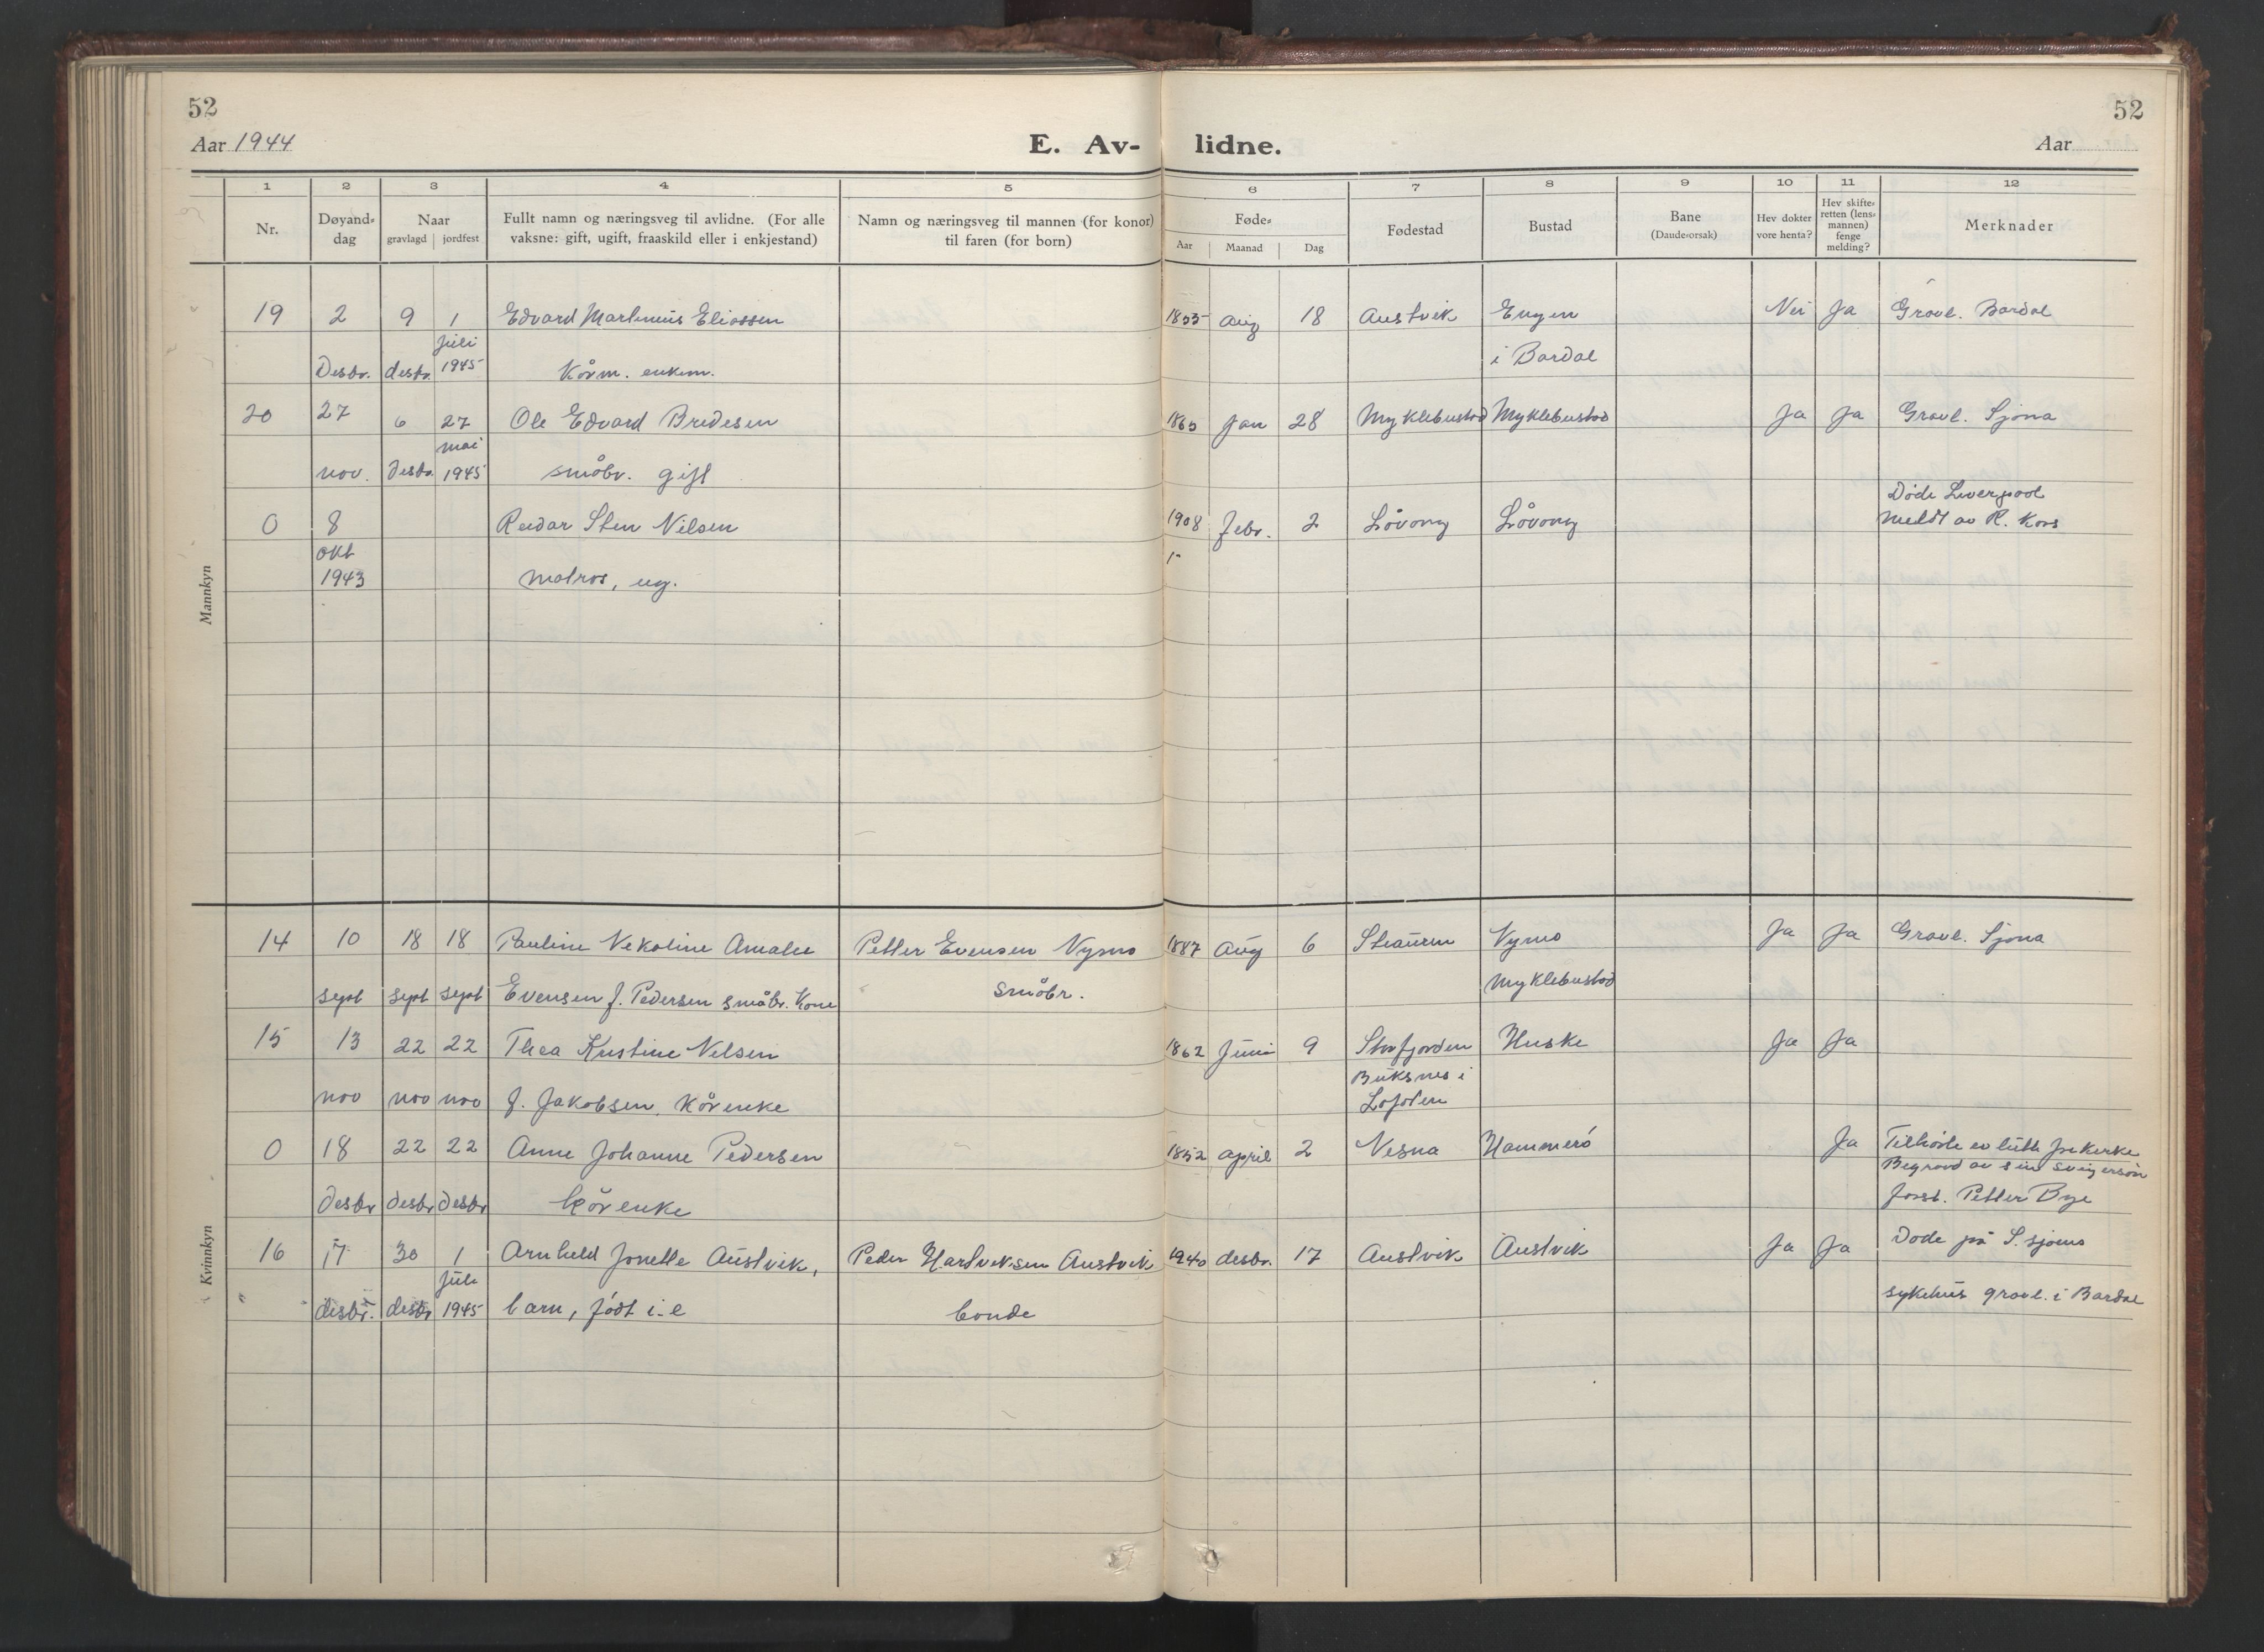 52
52
Aar 1944
E. Av- lidne.
Aar
1 2 3 4 5 6 7 8 9 10 11 12
Nr.
Døyand-
dag
Naar
gravlagd jordfest
Fullt namn og næringsveg til avlidne. (For alle
vaksne: gift, ugift, fraaskild eller i enkjestand)
Namn og næringsveg til mannen (for konor)
til faren (for born)
Føde-
Aar Maanad Dag
Fødestad
Bustad
Bane
(Daude-orsak)
Hev dokter
vore henta?
Hev skifte-
retten (lens-
mannen)
fenge
melding?
Merknader
Mannkyn
19 2 9 1 Edvard Martinus Eliassen 1855 Aug 18 Austvik Engen Nei Ja Gravl. Bardal
juli
Desbr. desbr. 1945 Kårm. enkem. i Bardal
20 27 6 27 Ole Edvard Bredesen Jan 28 Myklebustad Myklebustad Ja Ja Gravl. Sjona
mai
nov. desbr. 1945 småbr. gift
Døde Liverpool
0 8 Reidar Sten Nilsen 1908 febr. 2 Låvong Låvong meldt av R. Kors
okt
1943 matros, ug.
Kvinnkyn
14 10 18 18 Pauline Nekoline Amalie Petter Evensen Nymo 1887 Aug 6 Straumen Nymo Ja Ja Gravl. Sjona
sept sept sept Evensen f. Pedersen småbr. kone småbr. Myklebustad
15 13 22 22 Thea Kristine Nilsen 1862 Juni 9 Storfjorden Huske Ja Ja
Buksnes i
nov nov nov f. Jakobsen, kårenke Lofoten
0 18 22 22 Anne Johanne Pedersen 1852 april 2 Nesna Hammerø Ja Tilhørte ev luth frikirke
Begravd av sin svigersøn
desbr desbr desbr kårenke forst. Petter Bye
16 17 30 1 Arnhild Jonette Austvik, Peder Hartviksen Austvik 1940 desbr. 17 Austvik Austvik Ja Ja Døde på S.sjøens
juli
desbr. desbr 1945 barn, født i e bonde sykehus gravl. i Bardal